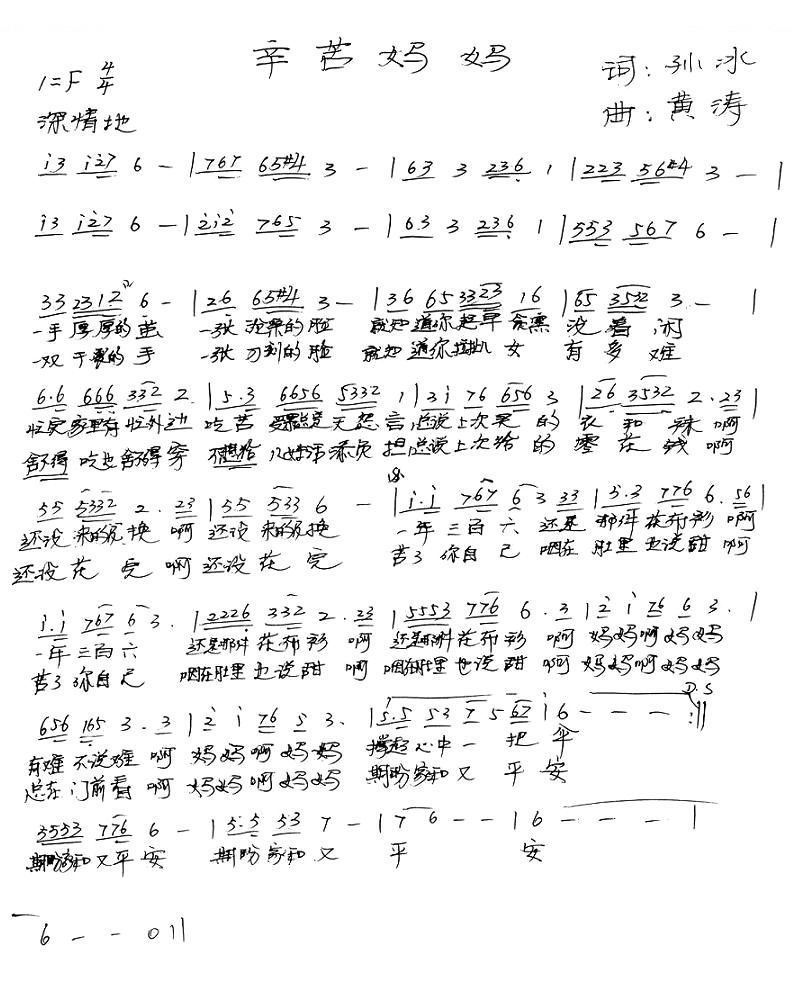 辛苦妈妈
1=F 4/4
词：孙冰
深情地
曲：黄涛
i3 i27 6 - | 767 65#4 3 - | 63 3 236 1 | 223 56#4 3 - |
i3 i27 6 - | 2i2 765 3 - | 63 3 236 1 | 553 567 6 - |
33 2312 6 - | 26 65#4 3 - | 36 65 3323 16 | 65 3532 3 - |
一手厚厚的茧 一张沧桑的脸 就知道你起早贪黑 没着闲
一双干裂的手 一张刀刻的脸 就知道你拉扯儿女 有多难
6.6 666 332 2. | 5.3 6656 5332 1 | 3i 76 656 3 | 26 3532 2.23 |
忙完家里有忙外边 吃苦受累总是无怨言 总说上次买的衣和袜啊
舍不得吃也舍不得穿 不想给儿女添负担 总说上次给的零花钱啊
55 5332 2.23 | 55 533 6 - | i.i 767 6 3 33 | 5.3 776 6.56 |
还没来的及换啊还没来的及换 一年三百六 还是那件花布衫啊
还没花完啊还没花完 苦了你自己 咽在肚里也说甜啊
i.i 767 6 3. | 2226 332 2.23 | 5553 776 6.3 | 2 i 76 6 3. |
一年三百六 还是那件花布衫啊 还是那件花布衫啊 妈妈啊妈妈
苦了你自己 咽在肚里也说甜啊 咽在肚里也说甜啊 妈妈啊妈妈
D.S
656 165 3.3 | 2 i 76 5 3. | 5.5 53 7 5 67 | 6 - - - :||
有难不说难啊 妈妈啊妈妈 撑起心中一把伞
总在门前看啊 妈妈啊妈妈 期盼家和又平安
3553 776 6 - | 5.5 53 7 - | 7 6 - - | 6 - - - |
期盼家和又平安 期盼家和又平安
6 - - 0 ||